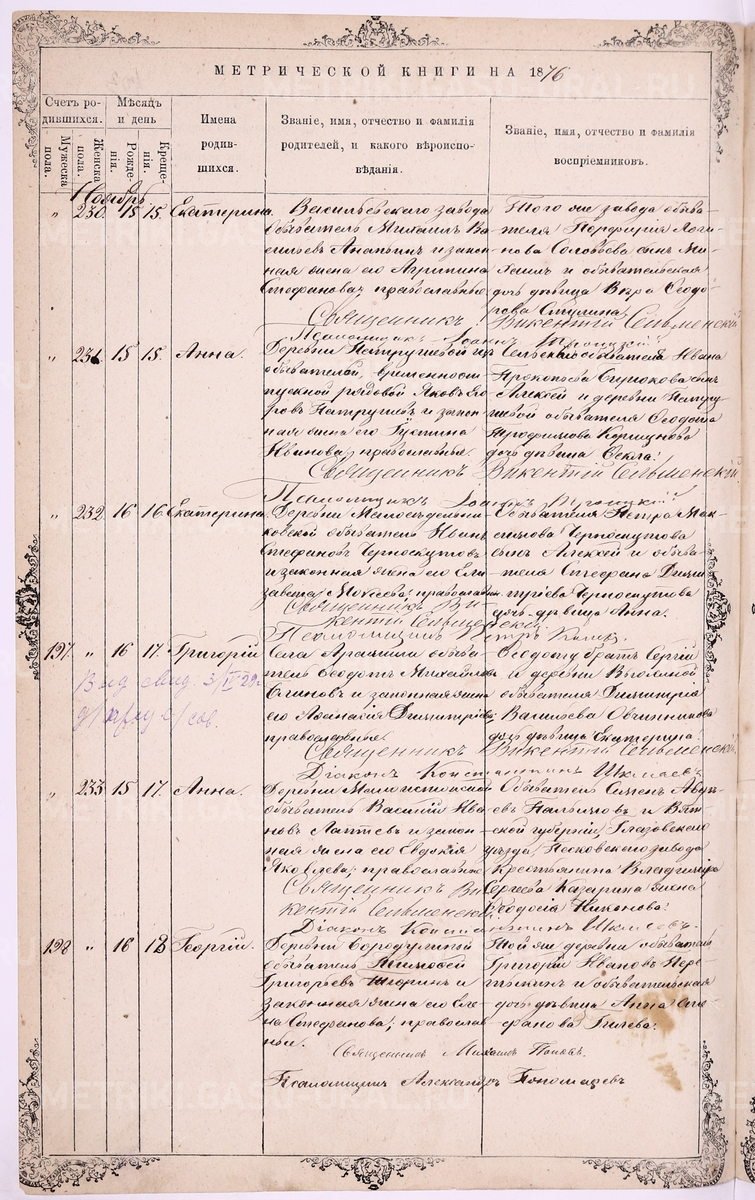 МЕТРИЧЕСКОЙ КНИГИ НА 1876
Счетъ родившихся.
Мужеска пола.
Женска пола.
Мѣсяцъ и день
Рожденія.
Крещенія.
Имена родившихся.
Званіе, имя, отчество и фамилія родителей, и какого вѣроисповѣданія.
Званіе, имя, отчество и фамилія воспріемниковъ.
Ноябрь
" 230. 15 15. Екатерина.
Васильевскаго завода
обыватель Михаилъ Ва
сильевъ Ананьинъ и закон
ная жена его Агрипина
Стефанова; православные
Того же завода обыва-
теля Порфирія Логи-
нова Соловьева сынъ Ми
и обывательская
дочь дѣвица Вѣра Ѳеодо-
рова
Священникъ Викентій Сельменскій
Псаломщикъ Іоаннъ Троицкій
" 231. 15 15. Анна.
Деревни
обывателей, временноот
пускной рядовой Яковъ Его
ровъ и закон
ная жена его Іустина
Иванова; православные.
Сельскаго обывателя Ивана
Прокопьева сынъ
Алексѣй и деревни
обывателя Ѳеодота
Трофимова
дочь дѣвица Ѳекла.
Священникъ Викентій Сельменскій
Псаломщикъ Іоаннъ Троицкій
" 232. 16 16. Екатерина.
Деревни
обыватель Иванъ
Стефановъ Черноскутовъ
и законная жена его Ели
завета Мокеева; православн
Обывателя Петра Мак-
симова Черноскутова
сынъ Алексѣй и обыва-
теля Стефана Дими
тріева Черноскутова
дочь дѣвица Анна.
Священникъ Ви
кентій Сельменскій
Псаломщикъ Петръ
197. " 16 17. Григорій
Села обыва
тель Ѳеодотъ Михайловъ
и законная жена
его Аѳанасія Димитріева;
православные
Ѳеодоту братъ Сергій
и деревни
обывателя Димитрія
Васильева Овчинникова
дочь дѣвица Екатерина.
Выд. свид. 3/II 29г.
Священникъ Викентій Сельменскій
Діаконъ Константинъ
" 233. 15 17. Анна.
Деревни
обыватель Василій Ива
новъ Лаптевъ и закон
ная жена его Евдокія
Яковлева; православные
Обыватель Семенъ
и Вят
ской губерніи, Глазовскаго
уѣзда, Песковскаго завода
крестьянина Владиміра
Сергѣева Казарина жена
Ѳеодосія Никонова.
Священникъ Ви
кентій Сельменскій
Діаконъ Константинъ
198 " 16 18 Георгій.
Деревни
обыватель Тимоѳей
Григорьевъ и
законная жена его Еле
на Стефанова; православ
ные.
Той же деревни обыватель
Григорій Ивановъ
и обывательская
дочь дѣвица Анна Сте
фанова Гилева.
Священникъ Михаилъ Поповъ.
Псаломщикъ Александръ Пономаревъ